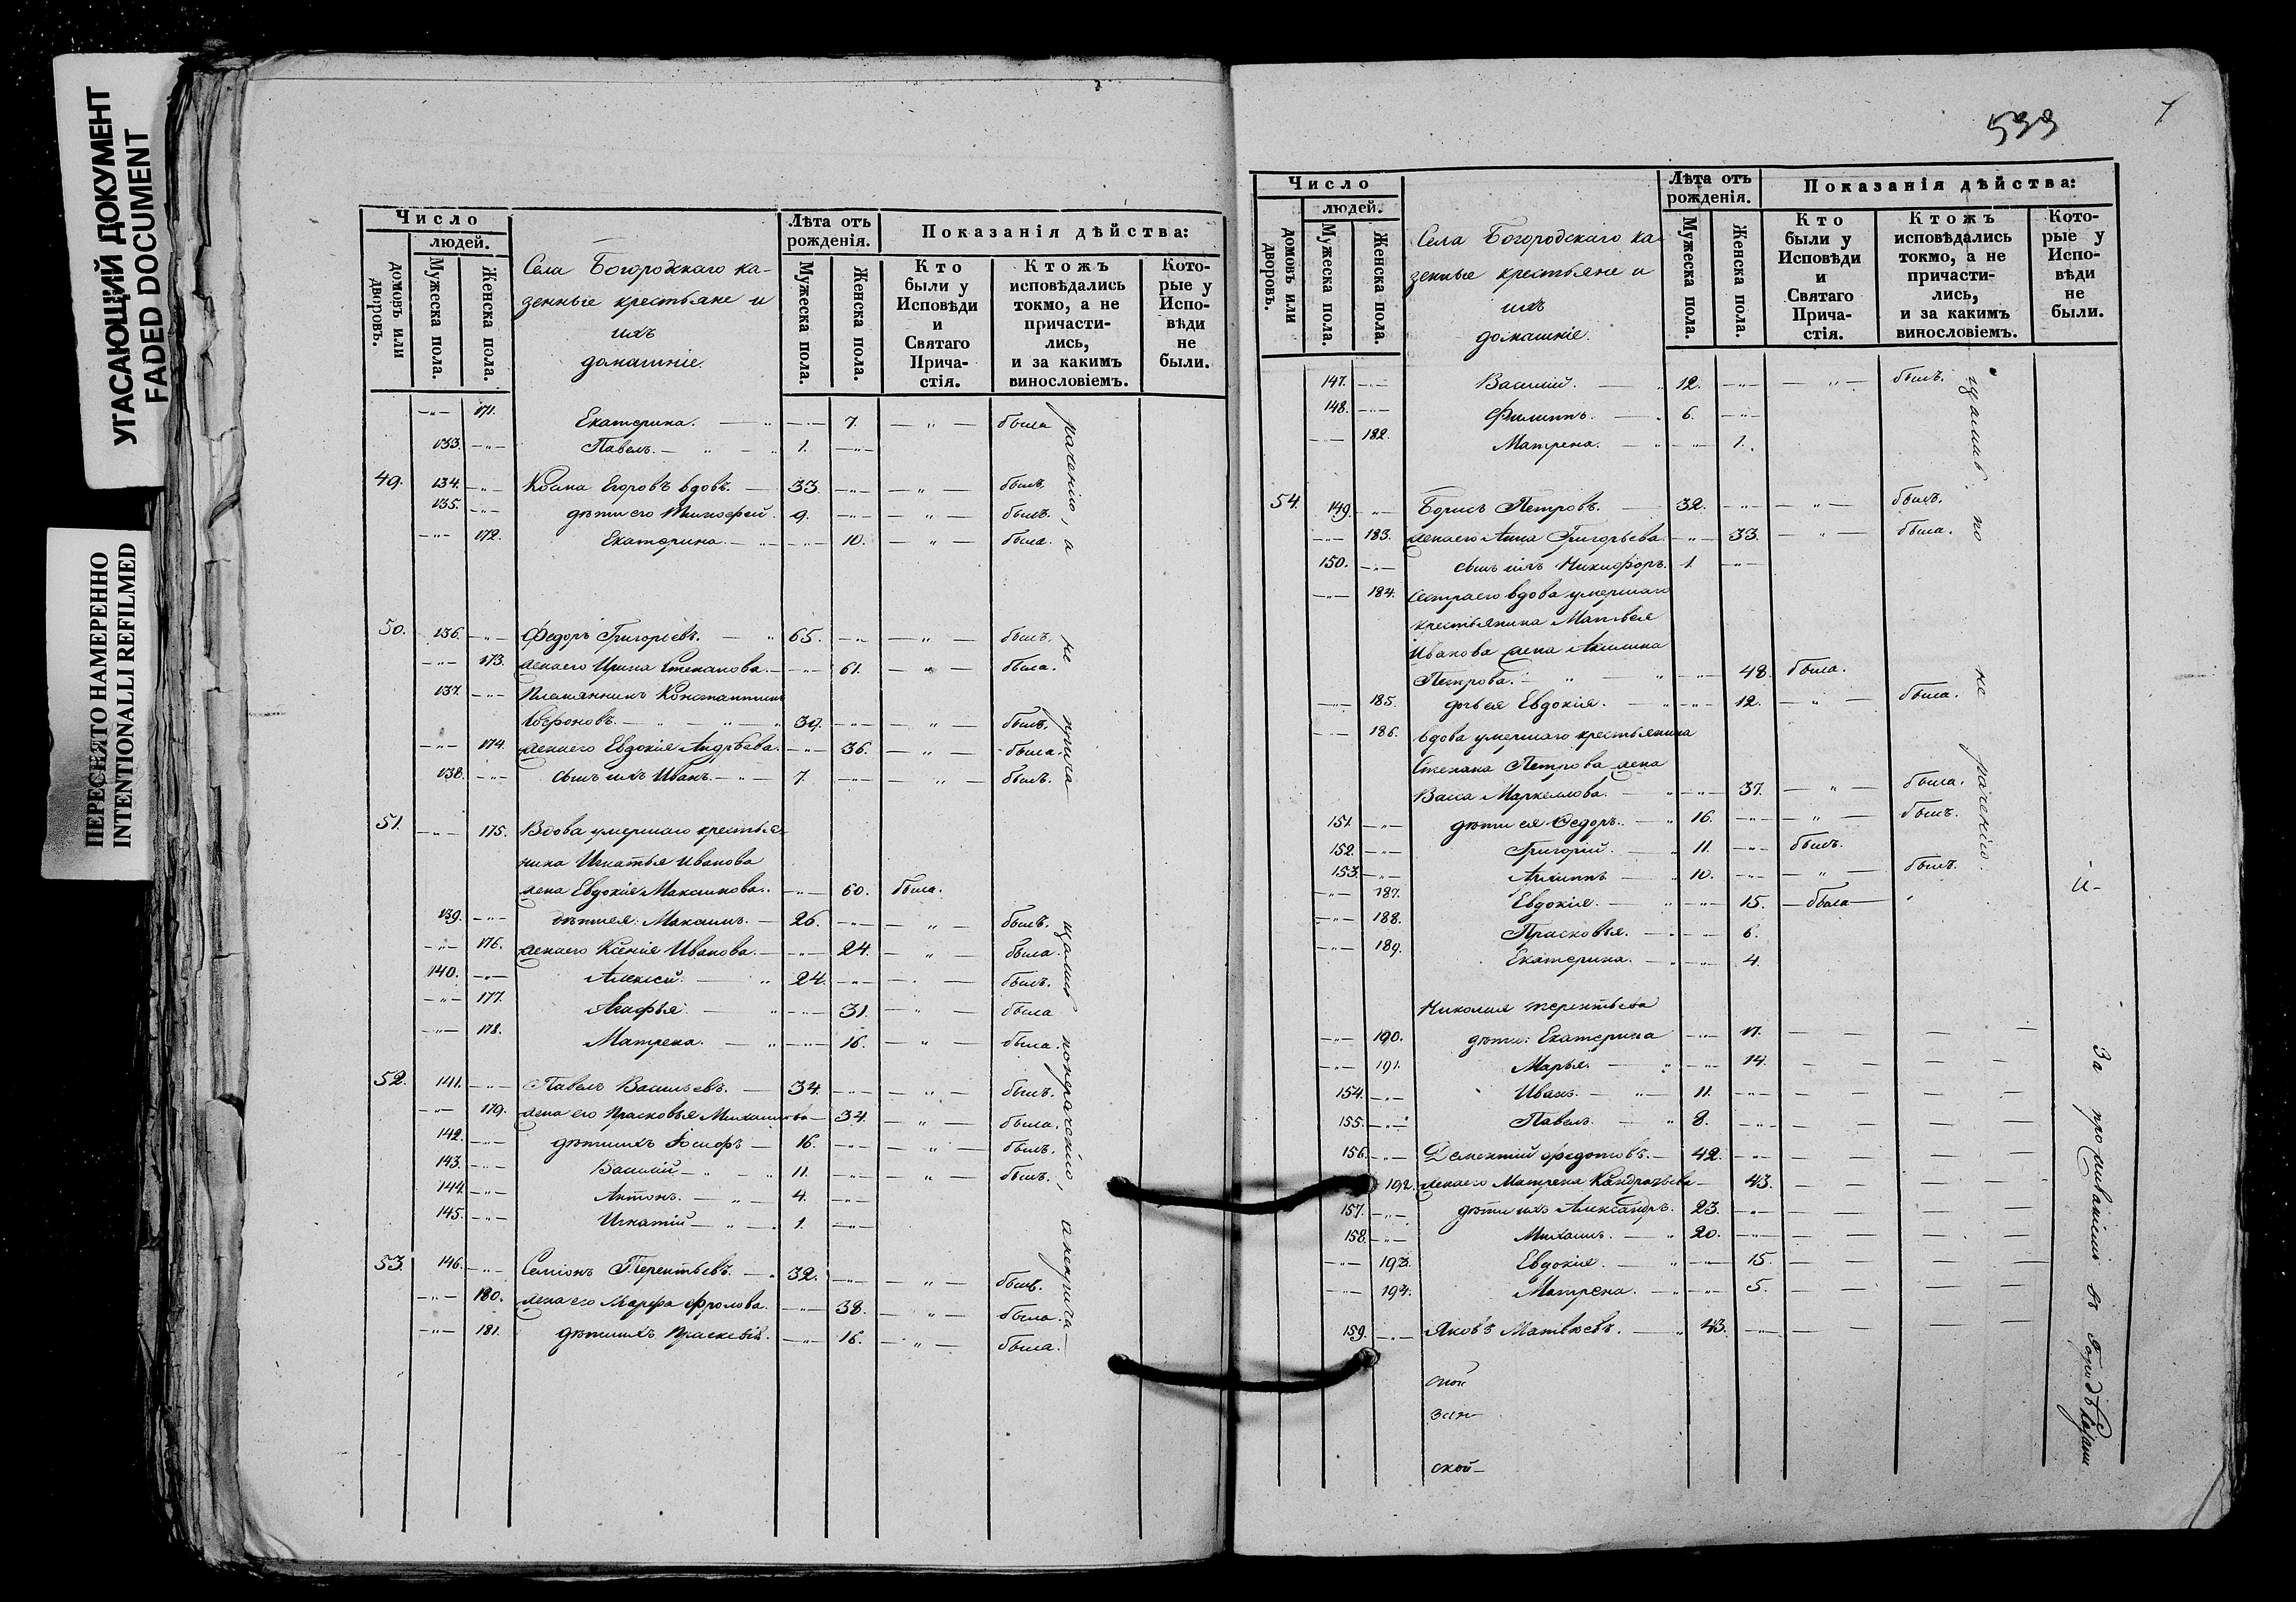 УГАСАЮЩИЙ ДОКУМЕНТ
FADED DOCUMENT
ПЕРЕСНЯТО НАМЕРЕННО
INTENTIONALLI REFILMED
Число
людей.
домовъ или дворовъ.
Мужеска пола.
Женска пола.
Села Богородскаго ка-
зенные крестьяне и
ихъ
домашніе.
Лѣта отъ
рожденія.
Мужеска пола.
Женска пола.
Показанія дѣйства:
Кто
были у
Исповѣди
и
Святаго
Прича-
стія.
Ктожъ
исповѣдались
токмо, а не
причасти-
лись,
и за какимъ
винословіемъ.
Кото-
рые у
Испо-
вѣди
не
были.
171. Екатерина. 7. была
133. Павелъ. 1.
49. 134. Косма Егоровъ вдовъ. 33. былъ.
135. дѣти его Тимофей. 9. былъ.
172. Екатерина. 10. была.
50. 136. Федоръ Григорьевъ. 65. былъ.
173. жена его Ирина Степанова. 61. была.
137. Племянникъ Константинъ
Софроновъ. 39. былъ.
174. жена его Евдокія Андрѣева. 36. была.
138. сынъ ихъ Иванъ. 7. былъ.
51. 175. Вдова умершаго крестья-
нина Игнатья Иванова
жена Евдокія Максимова. 60. была.
139. дѣти ея: Максимъ. 26. былъ.
176. жена его Ксенія Иванова. 24. была.
140. Алексѣй. 24. былъ.
177. Агафья. 31. была
178. Матрена. 16. была.
52. 141. Павелъ Васильевъ. 34. былъ.
179. жена его Прасковья Михайлова 34. была.
142. дѣти ихъ Іосифъ 16. былъ.
143. Василій 11. былъ.
144. Антонъ. 4.
145. Игнатій 1.
53. 146. Семіонъ Терентьевъ. 32. былъ.
180. жена его Марфа Фролова. 38. была.
181. дѣти ихъ Праскевія. 16. была.
539
Число
людей.
домовъ или дворовъ.
Мужеска пола.
Женска пола.
Села Богородскаго ка-
зенные крестьяне и
ихъ
домашніе.
Лѣта отъ
рожденія.
Мужеска пола.
Женска пола.
Показанія дѣйства:
Кто
были у
Исповѣди
и
Святаго
Прича-
стія.
Ктожъ
исповѣдались
токмо, а не
причасти-
лись,
и за какимъ
винословіемъ.
Кото-
рые у
Испо-
вѣди
не
были.
147. Василій. 12. былъ.
148. Филиппъ. 6.
182. Матрена. 1.
54. 149. Борисъ Петровъ. 32. былъ.
183. жена его Анна Григорьева. 33. была.
150. сынъ ихъ Никифоръ. 1.
184. сестра его вдова умершаго
крестьянина Матвея
Иванова жена Акилина
Петрова. 48. была.
185. дочь ея Евдокія. 12. была.
186. вдова умершаго крестьянина
Степана Петрова жена
Васса Маркеллова. 37. была.
151. дѣти ея Федоръ. 16. былъ.
152. Григорій. 11. былъ.
153. Архиппъ 10. былъ.
187. Евдокія. 15. была
188. Прасковья. 6.
189. Екатерина. 4.
Николая Терентьева
190. дѣти: Екатерина 17.
191. Марья. 14.
154. Иванъ. 11.
155. Павелъ. 8.
156. Дементій Федотовъ. 42.
192. жена его Матрена Кондратьева 43.
157. дѣти ихъ Александръ. 23.
158. Михаилъ. 20.
193. Евдокія. 15.
194. Матрена. 5.
159. Яковъ Матвѣевъ. 43.
ской